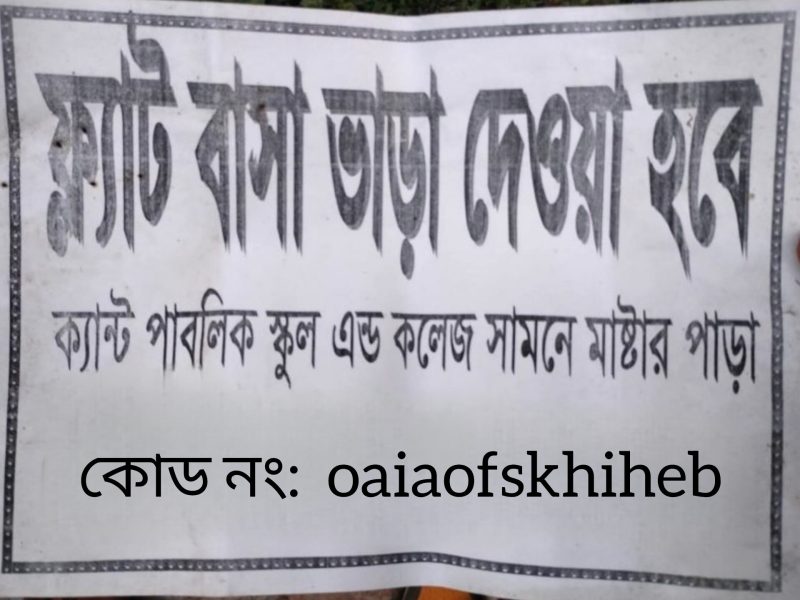 ফ্ল্যাট বাসা ভাড়া দেওয়া হবে
ক্যান্ট পাবলিক স্কুল এন্ড কলেজ সামনে মাষ্টার পাড়া
কোড নং: oaiaofskhiheb